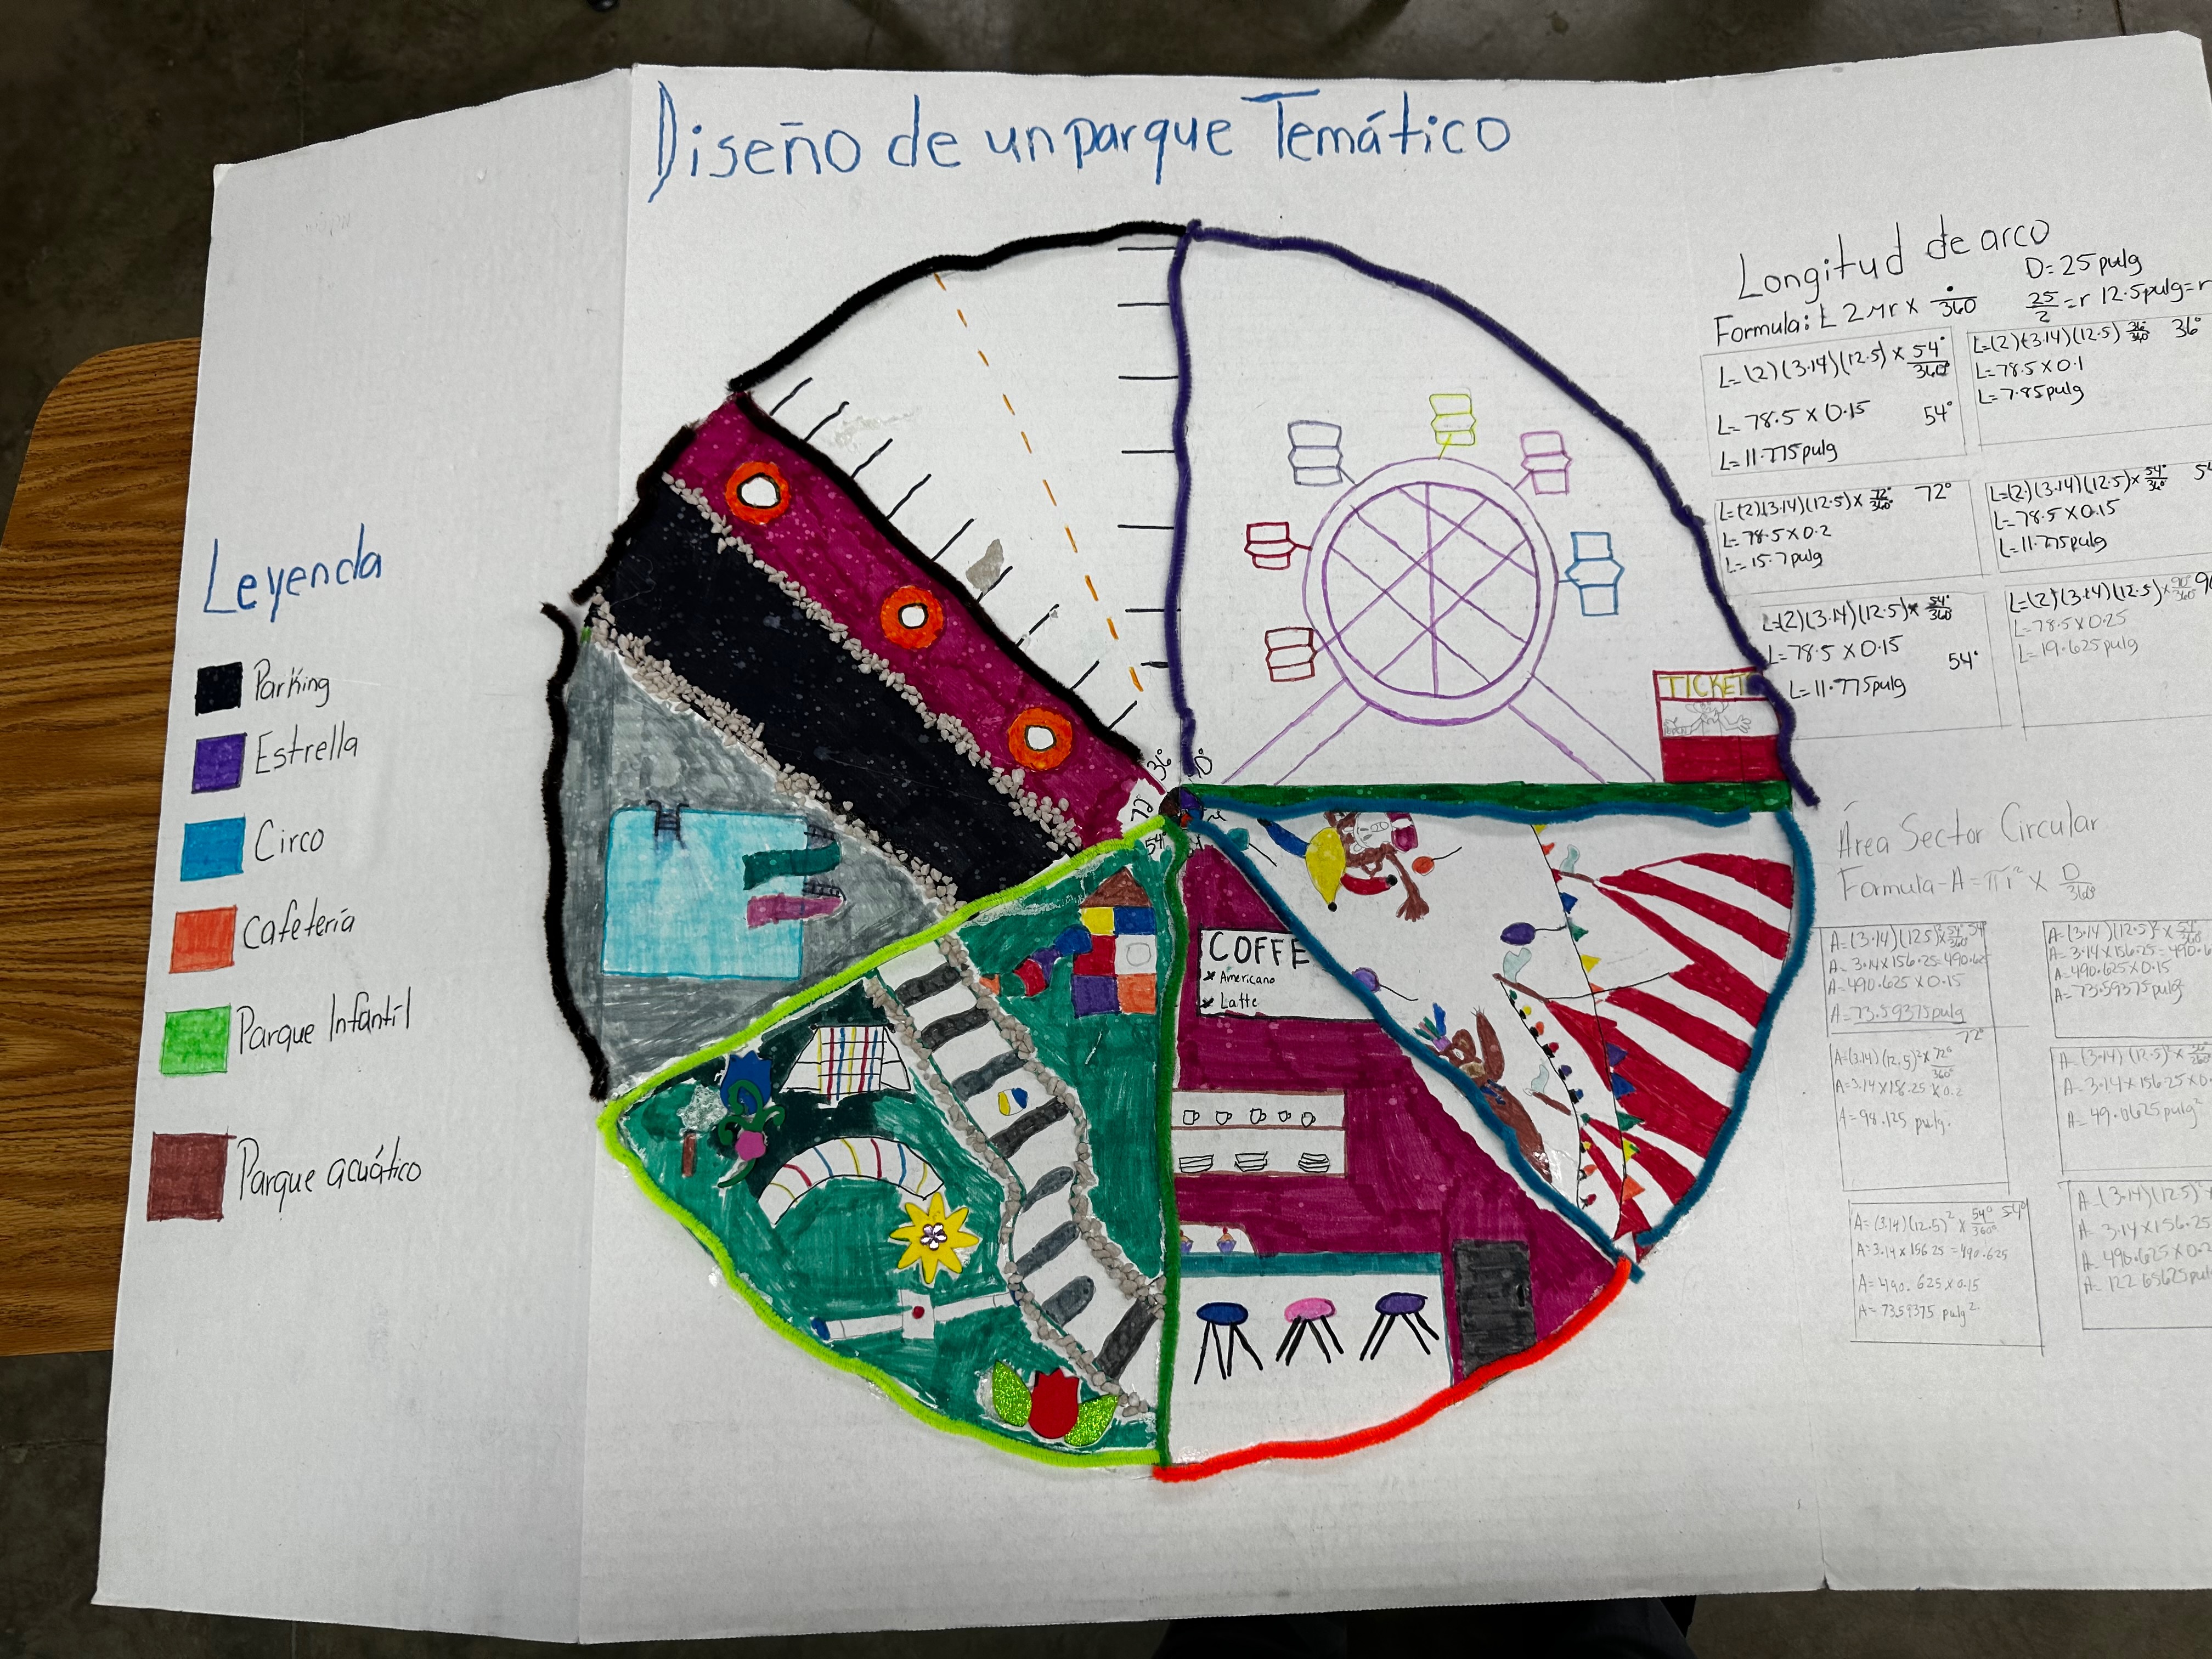 Diseño de un parque Temático
Leyenda
Parking
Estrella
Circo
Cafetería
Parque Infantil
Parque acuático
36°
72°
54°
TICKET
COFFE
Americano
Latte
Longitud de arco
D=25 pulg
Formula: L 2πr x °/360
25/2 =r 12.5pulg=r
L=(2)(3.14)(12.5) x 54°/360°
L=78.5 x 0.15 54°
L=11.775pulg
L=(2)(3.14)(12.5) 36/360 36°
L=78.5 x 0.1
L=7.85pulg
L=(2)(3.14)(12.5) x 72°/360° 72°
L=78.5 x 0.2
L=15.7pulg
L=(2)(3.14)(12.5) x 54°/36°
L=78.5 x 0.15
L=11.775pulg
L=(2)(3.14)(12.5) x 54°/360
L=78.5 x 0.15
54°
L=11.775pulg
L=(2)(3.14)(12.5) x 90°/360
L=78.5 x 0.25
L=19.625pulg
Área Sector Circular
Formula-A=πr² x D/360°
A=(3.14)(12.5)² x 54°/360° 54°
A=3.14x156.25=490.62
A=490.625 x 0.15
A=73.59375pulg
A=(3.14)(12.5)² x 54/360
A=3.14x156.25=490.6
A=490.625x0.15
A=73.59375pulg²
72°
A=(3.14)(12.5)² x 72°/360°
A=3.14x18.25 x 0.2
A=98.125 pulg.
A=(3.14)(12.5)² x
A=3.14x156.25x0.
A=49.0625pulg²
A=(3.14)(12.5)² x 54°/360° 54°
A=3.14x156.25=490.625
A=490.625x0.15
A=73.59375 pulg²
A=(3.14)(12.5)²
A=3.14x156.25
A=490.625x0.2
A=122.65625pul